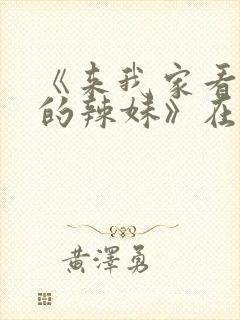 《来我家看
的辣妹》在
黄澤勇